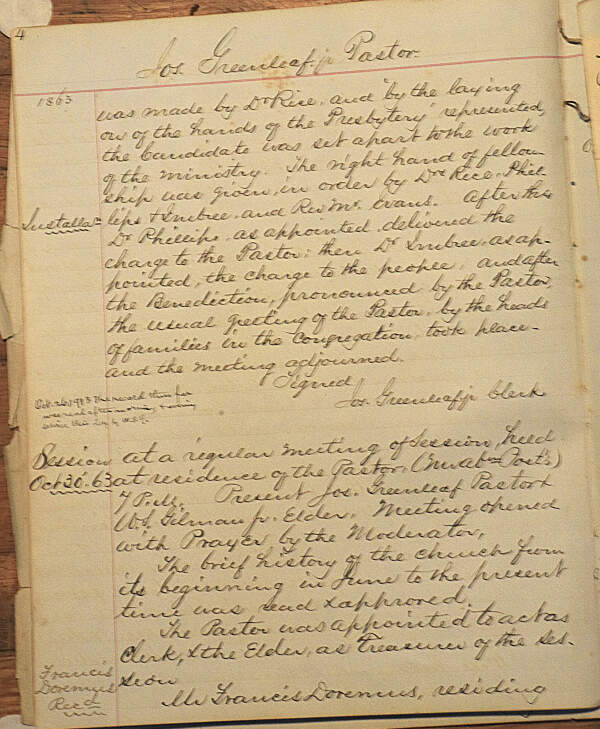 4
Jos. Greenleaf jr Pastor.
1863
was made by Dr Rice, and "by the laying
on of the hands of the Presbytery" represented,
the Candidate was set apart to the work
of the ministry. The right hand of fellow-
ship was given, in order by Drs Rice, Phil-
Installan
lips & Imbree, and Rev Mr. Evans. After this
Dr Phillips, as appointed, delivered the
charge to the Pastor; then Dr Imbree, as ap-
pointed, the charge to the people, and after
the Benediction, pronounced by the Pastor,
the usual greeting of the Pastor, by the heads
of families in the Congregation, took place—
and the meeting adjourned.
Signed
Jos. Greenleaf jr Clerk
Oct. 26, 1913 The record thus far
was read after morning & evening
service this day by
Session
Oct 30. 63
At a regular meeting of Session, held
at residence of the Pastor, (
7 P.M. Present Jos. Greenleaf Pastor &
W.S. Gilman jr. Elder. Meeting opened
with Prayer by the Moderator,
The brief history of the church from
its beginning in June to the present
time was read & approved.
The Pastor was appointed to act as
Clerk, & the Elder, as Treasurer of the Ses-
sion
Francis
Doremus
Recd
Mr Francis Doremus, residing